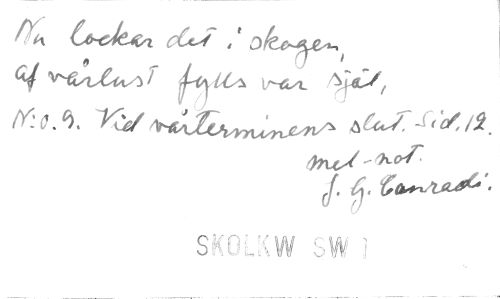 Nu lockar det i skogen,
af vårlust fylls var själ,
N:o. 9. Vid vårterminens slut. Sid. 12.
mel-not.
J. G. Conradi.
SKOLKW SW 1